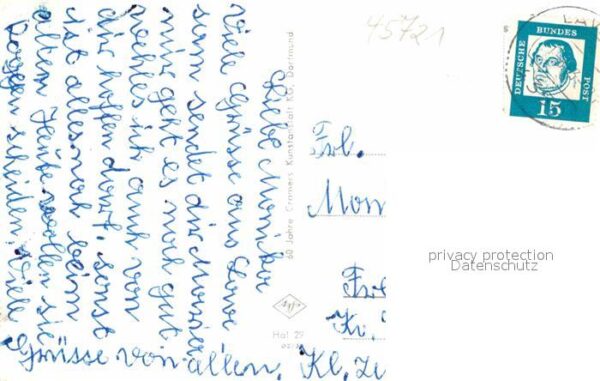 Liebe Monika
Viele Grüsse aus Lowe
sum sendet dir
mir geht es noch gut
welches ich auch von
dir hoffen darf. sonst
ist alles noch beim
alten Heute wollen sie
Roggen scheiden. Viele
Grüsse von allen. Kl.
60 Jahre Cramers Kunstanstalt KG, Dortmund
Hal 29
45721
DEUTSCHE BUNDES POST
15
Frl.
Mon
privacy protection
Datenschutz
Kr.